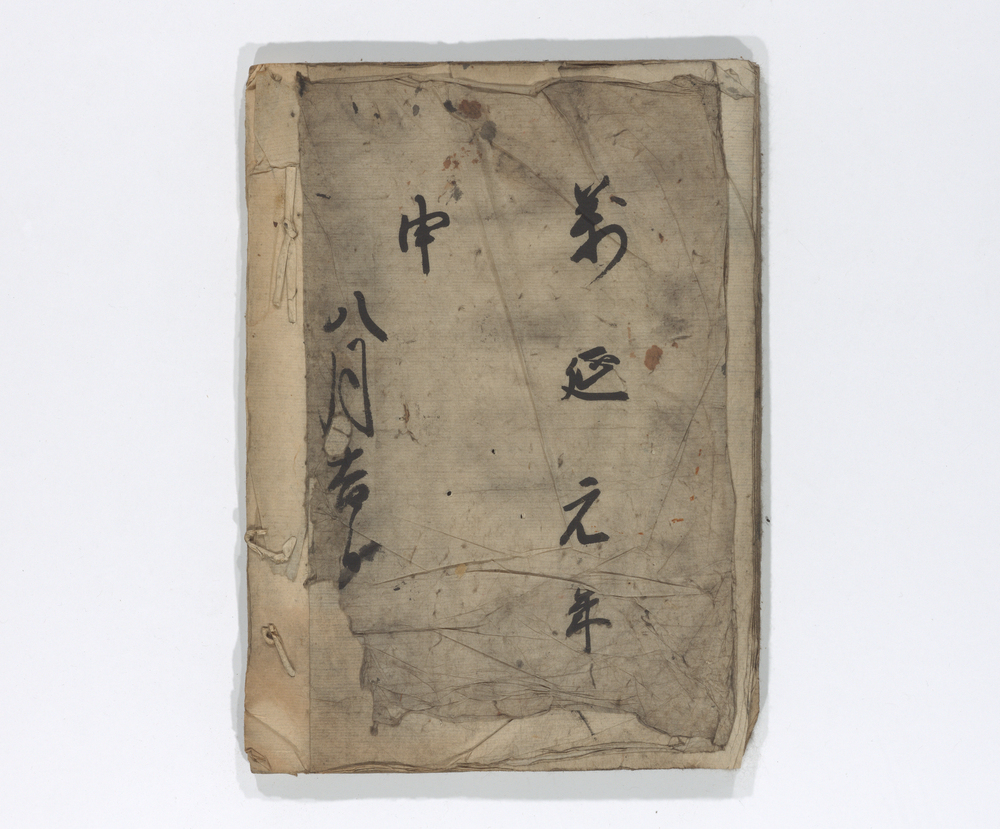 萬延元年
申
八月吉日